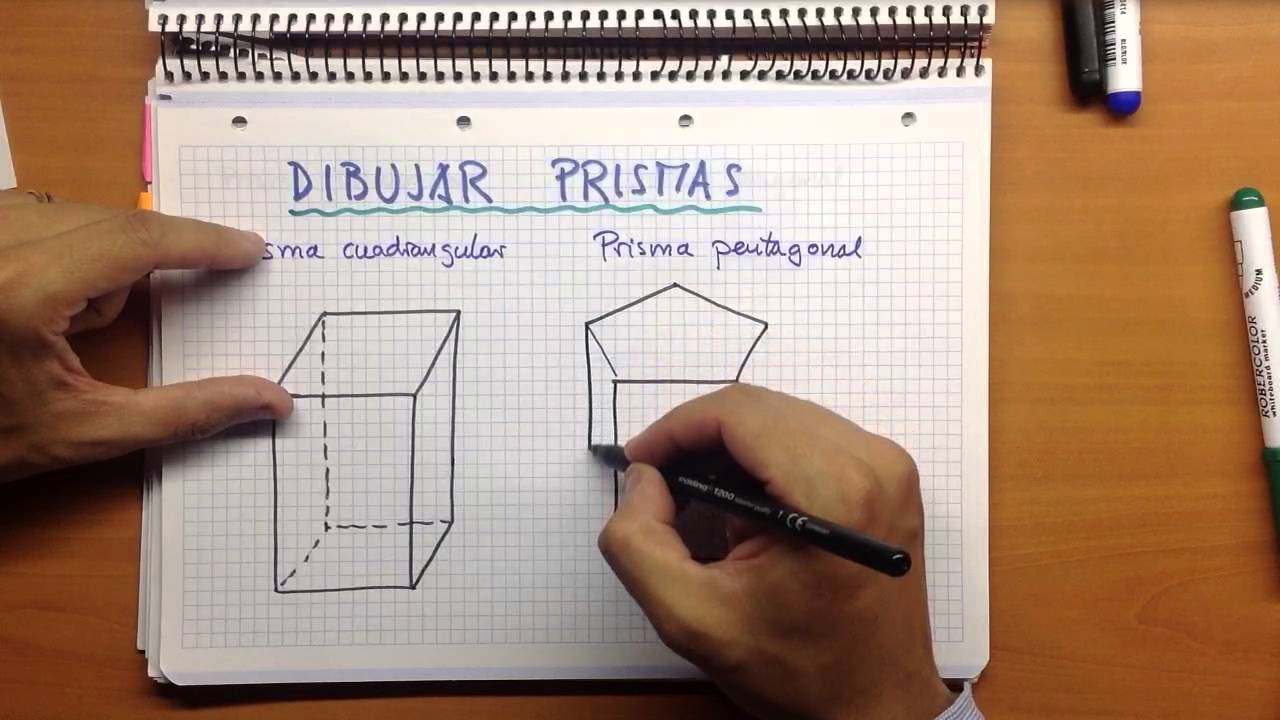 DIBUJAR PRISMAS
sma cuadrangular
Prisma pentagonal
edding 1200
CE
ROBERCOLOR
whiteboard marker
MEDIUM